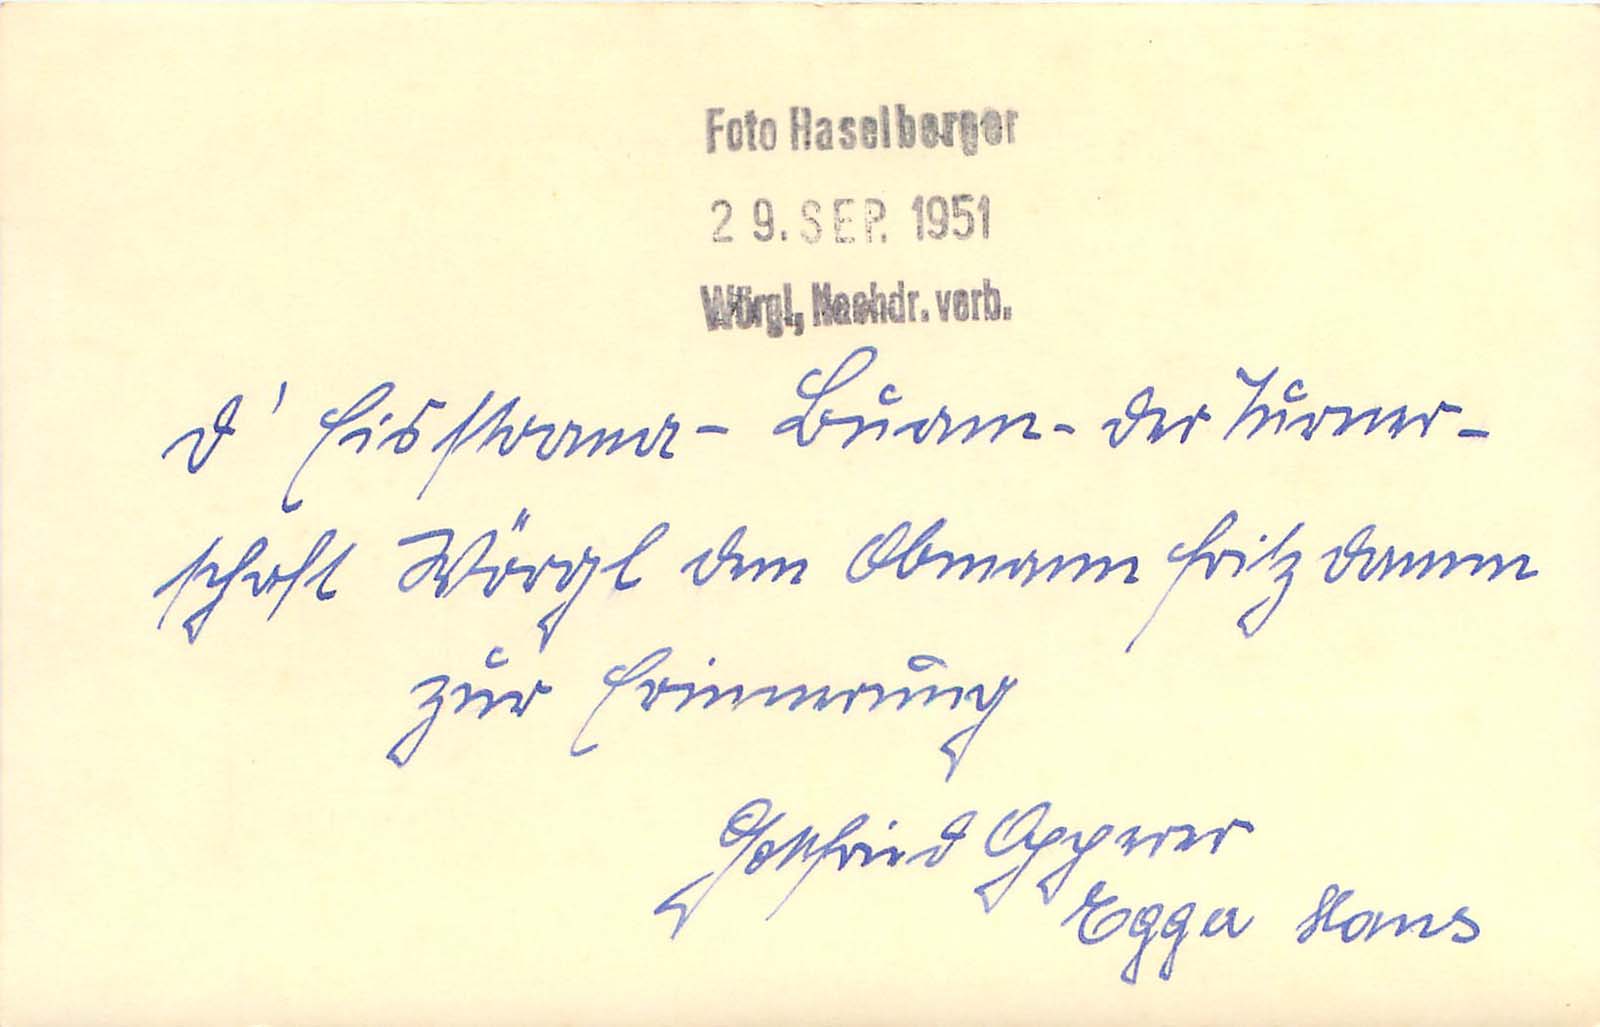 Foto Haselberger
29. SEP. 1951
Wörgl, Nachdr. verb.
D' Eisstoana - Buam - der Turner-
schaft Wörgl dem Obmann Fritz Damm
zur Erinnerung
Gottfried Opperer
Egger Hans